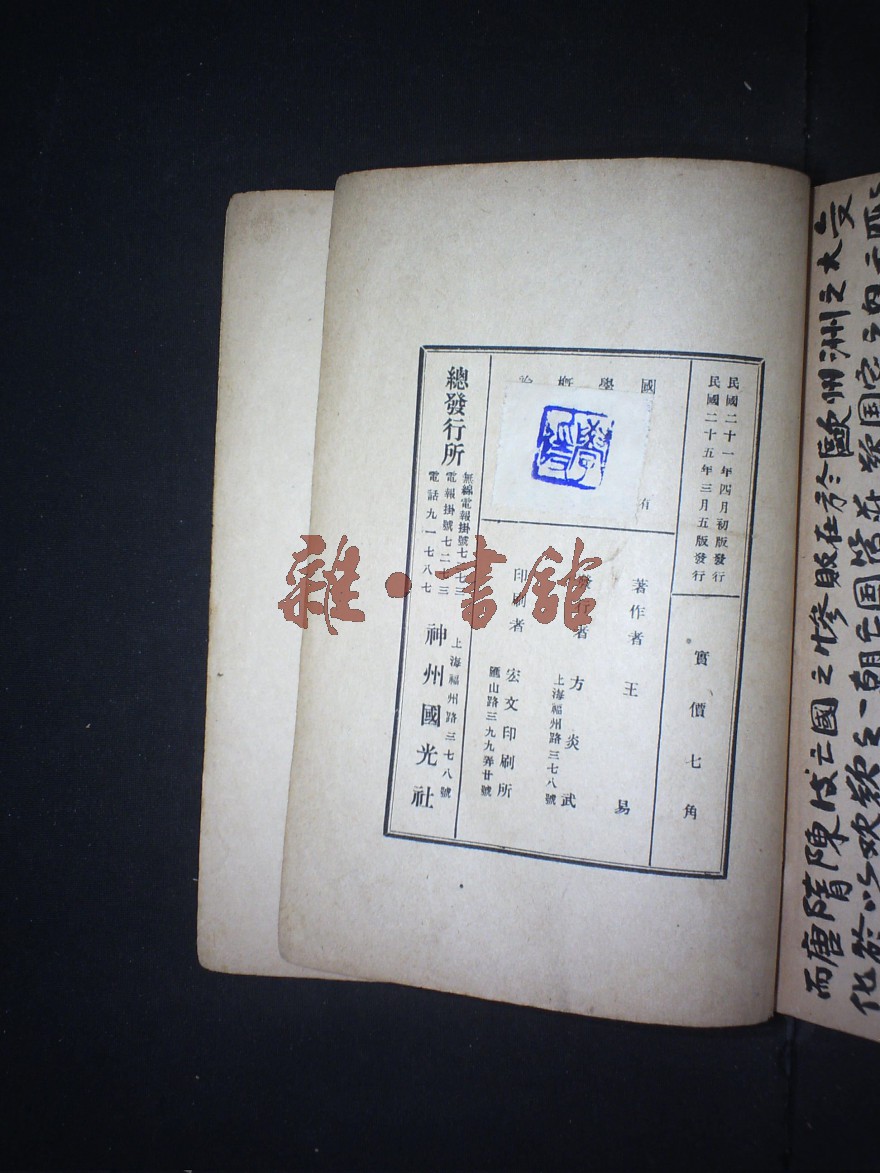 民國二十一年四月初版發行
民國二十五年三月五版發行
實價七角
國學概論
有
著作者 王易
發行者 方炎武
上海福州路三七八號
印刷者 宏文印刷所
匯山路三九九弄廿號
總發行所 神州國光社
上海福州路三七八號
無線電報掛號七七七三
電報掛號七二一三
電話九一七八七
雜·書館
而唐隋陳後亡國之慘敗在於歐州洲之大变